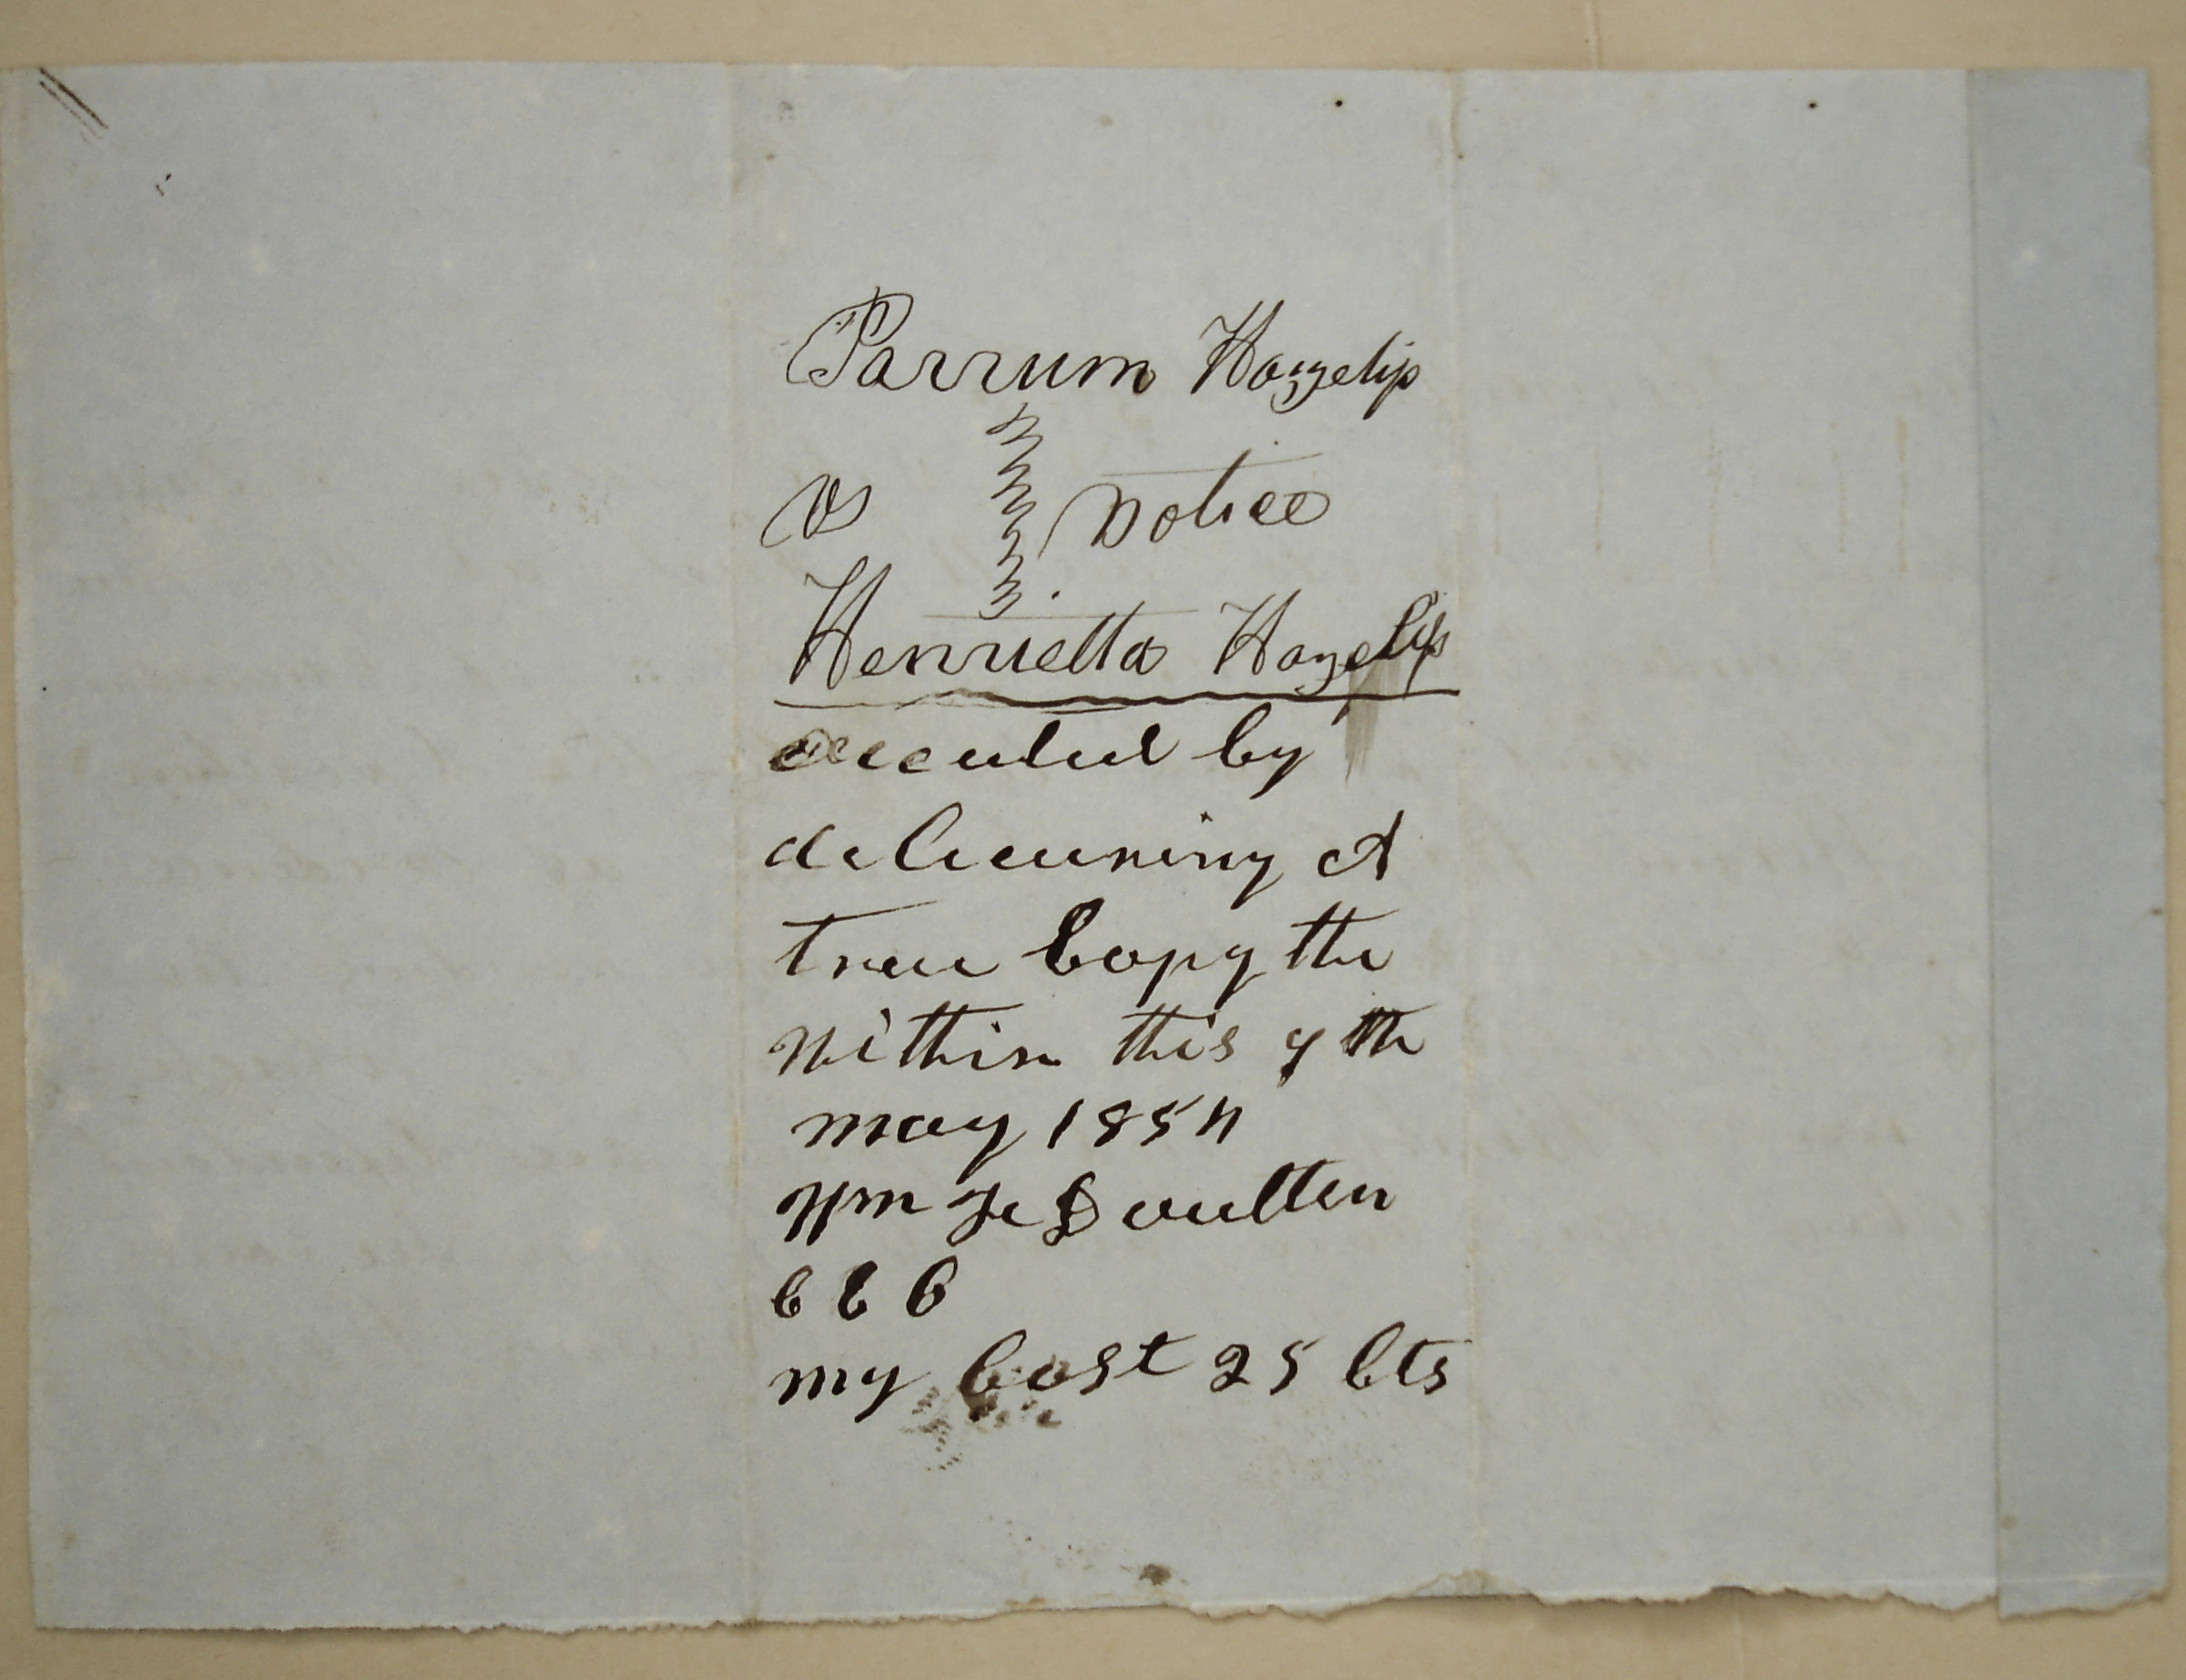 Parrum Hazelip
vs } Notice
Henrietta Hazelip
execuled by
delicurering A
True Copy the
Within this 9 th
may 1854
Wm
C C C
my Cost 25 Cts